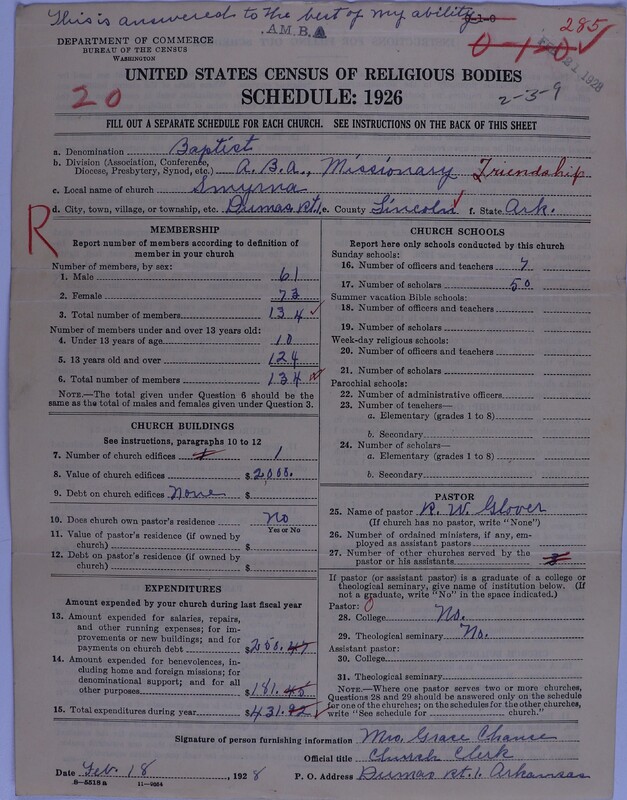 This is answered to the best of my ability
A.M.B.A
285
0-1-0
DEPARTMENT OF COMMERCE
BUREAU OF THE CENSUS
WASHINGTON
21 1928
UNITED STATES CENSUS OF RELIGIOUS BODIES
20 SCHEDULE: 1926 2-3-9
FILL OUT A SEPARATE SCHEDULE FOR EACH CHURCH. SEE INSTRUCTIONS ON THE BACK OF THIS SHEET
a. Denomination Baptist
b. Division (Association, Conference, Diocese, Presbytery, Synod, etc.) A.B.A., Missionary Friendship
c. Local name of church Smyrna
d. City, town, village, or township, etc. Dumas Rt. 1. e. County Lincoln f. State Ark.
R
MEMBERSHIP
Report number of members according to definition of
member in your church
Number of members, by sex:
1. Male 61
2. Female 73
3. Total number of members 134
Number of members under and over 13 years old:
4. Under 13 years of age 10
5. 13 years old and over 124
6. Total number of members 134
NOTE.—The total given under Question 6 should be
the same as the total of males and females given under Question 3.
CHURCH BUILDINGS
See instructions, paragraphs 10 to 12
7. Number of church edifices 1
8. Value of church edifices $2,000.
9. Debt on church edifices None $
10. Does church own pastor's residence No
Yes or No
11. Value of pastor's residence (if owned by
church) $
12. Debt on pastor's residence (if owned by
church) $
EXPENDITURES
Amount expended by your church during last fiscal year
13. Amount expended for salaries, repairs,
and other running expenses; for im-
provements or new buildings; and for
payments on church debt $250.47
14. Amount expended for benevolences, in-
cluding home and foreign missions; for
denominational support; and for all
other purposes $181.45
15. Total expenditures during year $431.92
CHURCH SCHOOLS
Report here only schools conducted by this church
Sunday schools:
16. Number of officers and teachers 7
17. Number of scholars 50
Summer vacation Bible schools:
18. Number of officers and teachers
19. Number of scholars
Week-day religious schools:
20. Number of officers and teachers
21. Number of scholars
Parochial schools:
22. Number of administrative officers
23. Number of teachers—
a. Elementary (grades 1 to 8)
b. Secondary
24. Number of scholars—
a. Elementary (grades 1 to 8)
b. Secondary
PASTOR
25. Name of pastor R. W. Glover
(If church has no pastor, write "None")
26. Number of ordained ministers, if any, em-
ployed as assistant pastors
27. Number of other churches served by the
pastor or his assistants 3
If pastor (or assistant pastor) is a graduate of a college or
theological seminary, give name of institution below. (If
not a graduate, write "No" in the space indicated.)
Pastor: 0
28. College No.
29. Theological seminary No.
Assistant pastor:
30. College
31. Theological seminary
NOTE.—Where one pastor serves two or more churches,
Questions 28 and 29 should be answered only on the schedule
for one of the churches; on the schedules for the other churches,
write "See schedule for church."
Signature of person furnishing information Mrs. Grace Chance
Official title Church Clerk
Date Feb. 18, 1928 P. O. Address Dumas Rt. 1. Arkansas
8—5518 a 11—9554